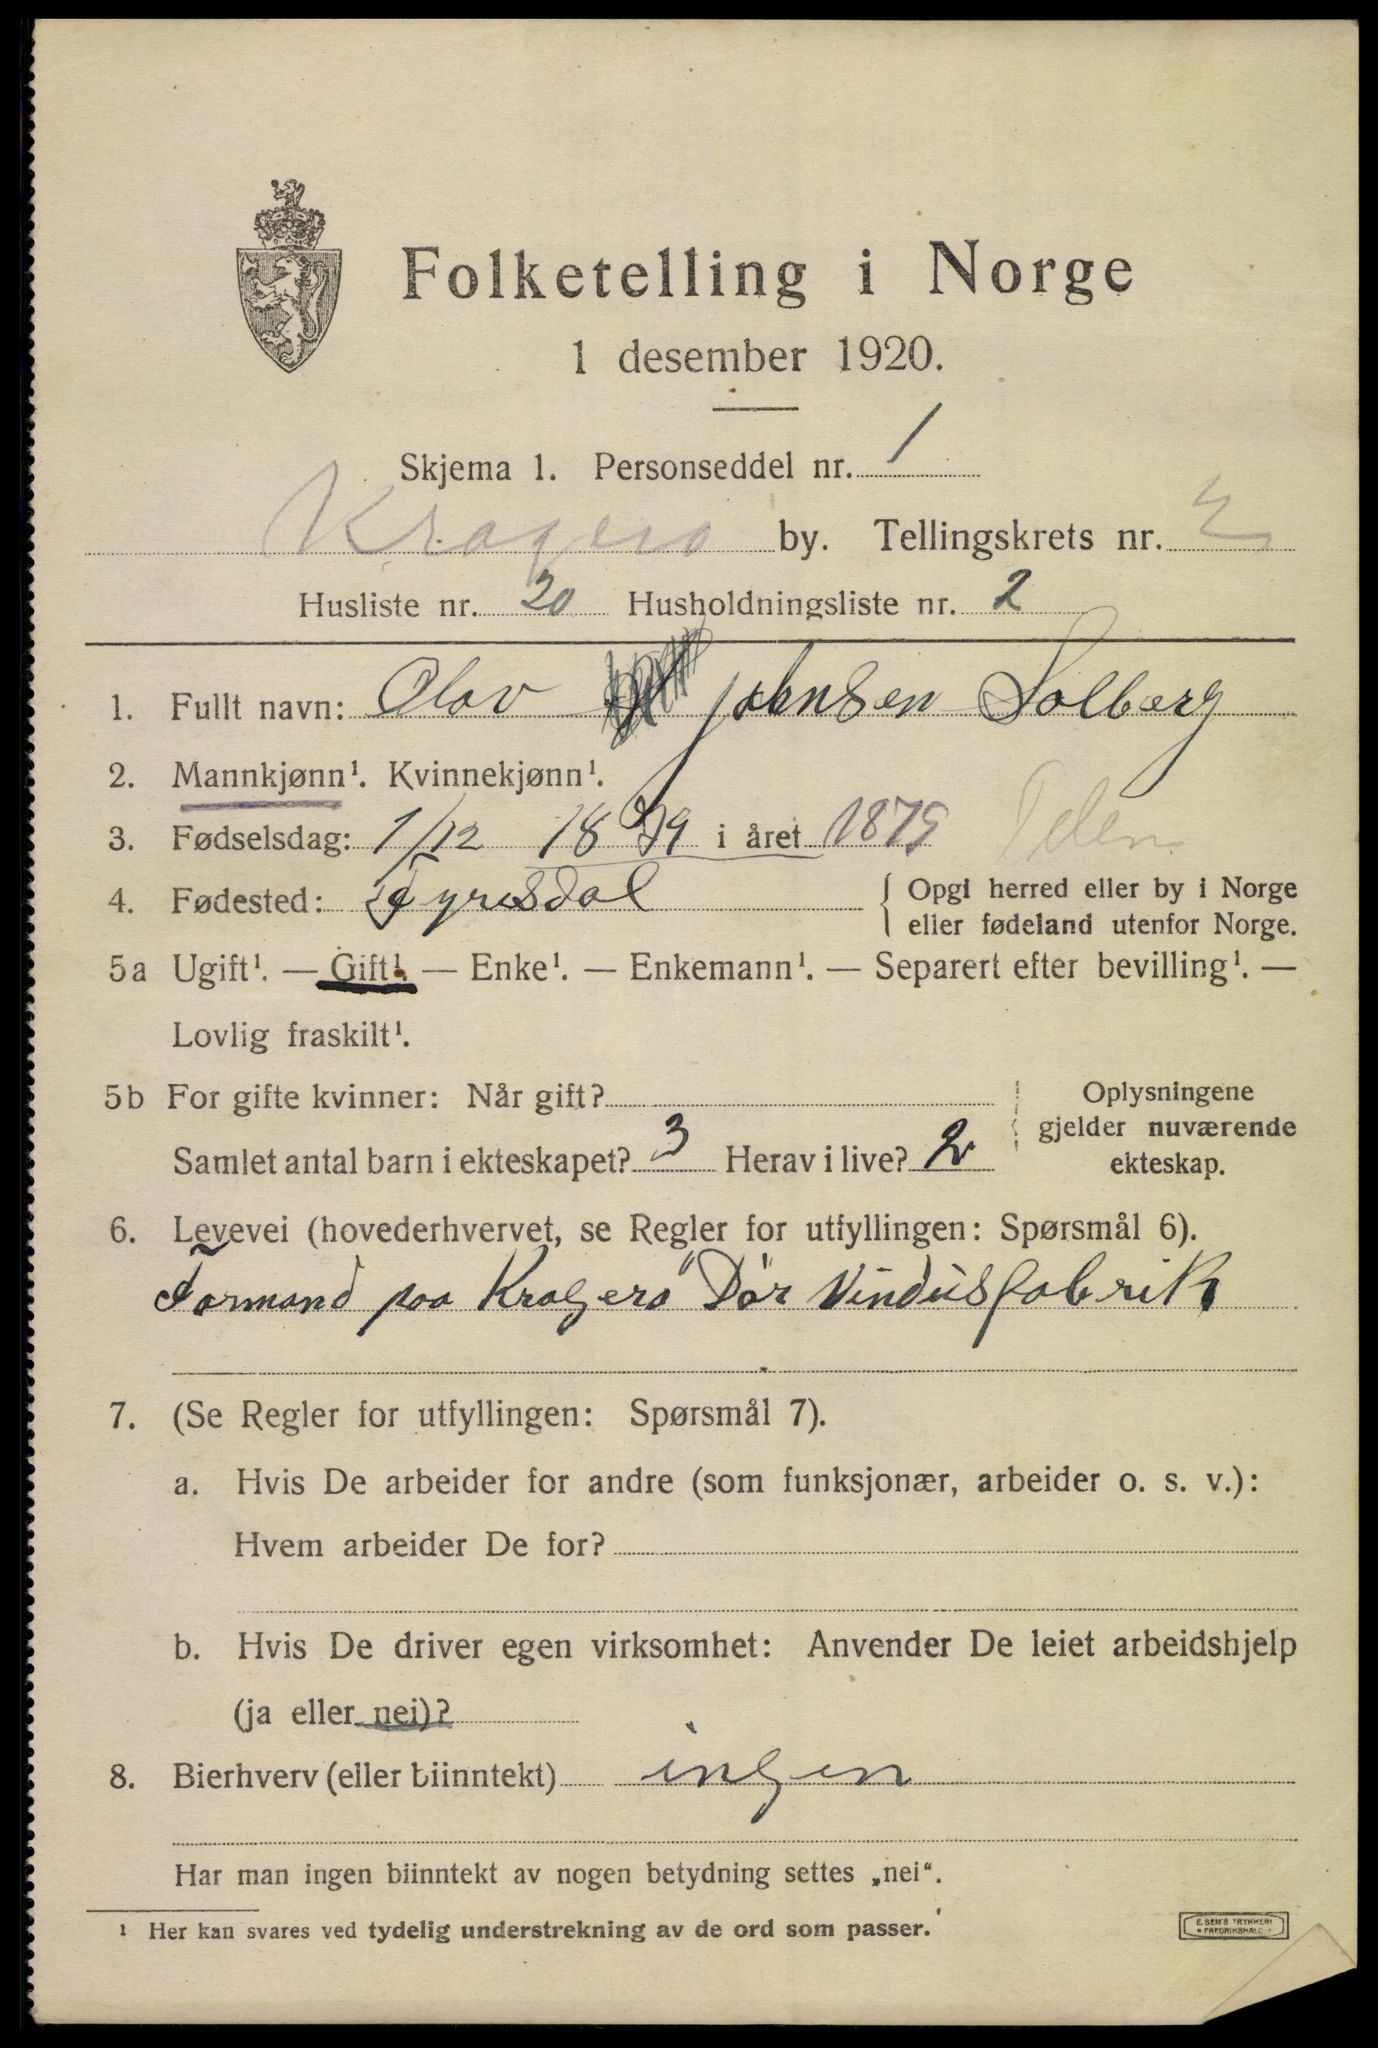 Folketelling i Norge
1 desember 1920.
Skjema 1. Personseddel nr. 1
Kragerø by. Tellingskrets nr. 2
Husliste nr. 20 Husholdningsliste nr. 2
1. Fullt navn: Olav Johnsen Solberg
2. Mannkjønn¹. Kvinnekjønn¹.
3. Fødselsdag: 1/12 1879 i året 1879
4. Fødested: Tyrisdal Telem
{ Opgi herred eller by i Norge
eller fødeland utenfor Norge.
5a Ugift¹. — Gift¹. — Enke¹. — Enkemann¹. — Separert efter bevilling¹. —
Lovlig fraskilt¹.
5b For gifte kvinner: Når gift?
Samlet antal barn i ekteskapet? 3 Herav i live? 2
Oplysningene
gjelder nuværende
ekteskap.
6. Levevei (hovederhvervet, se Regler for utfyllingen: Spørsmål 6).
Formand paa Kragerø Dør Vindusfabrik
7. (Se Regler for utfyllingen: Spørsmål 7).
a. Hvis De arbeider for andre (som funksjonær, arbeider o. s. v.):
Hvem arbeider De for?
b. Hvis De driver egen virksomhet: Anvender De leiet arbeidshjelp
(ja eller nei)?
8. Bierhverv (eller biinntekt) ingen
Har man ingen biinntekt av nogen betydning settes „nei“.
¹ Her kan svares ved tydelig understrekning av de ord som passer.
E. SEM'S TRYKKERI
FREDRIKSHALD